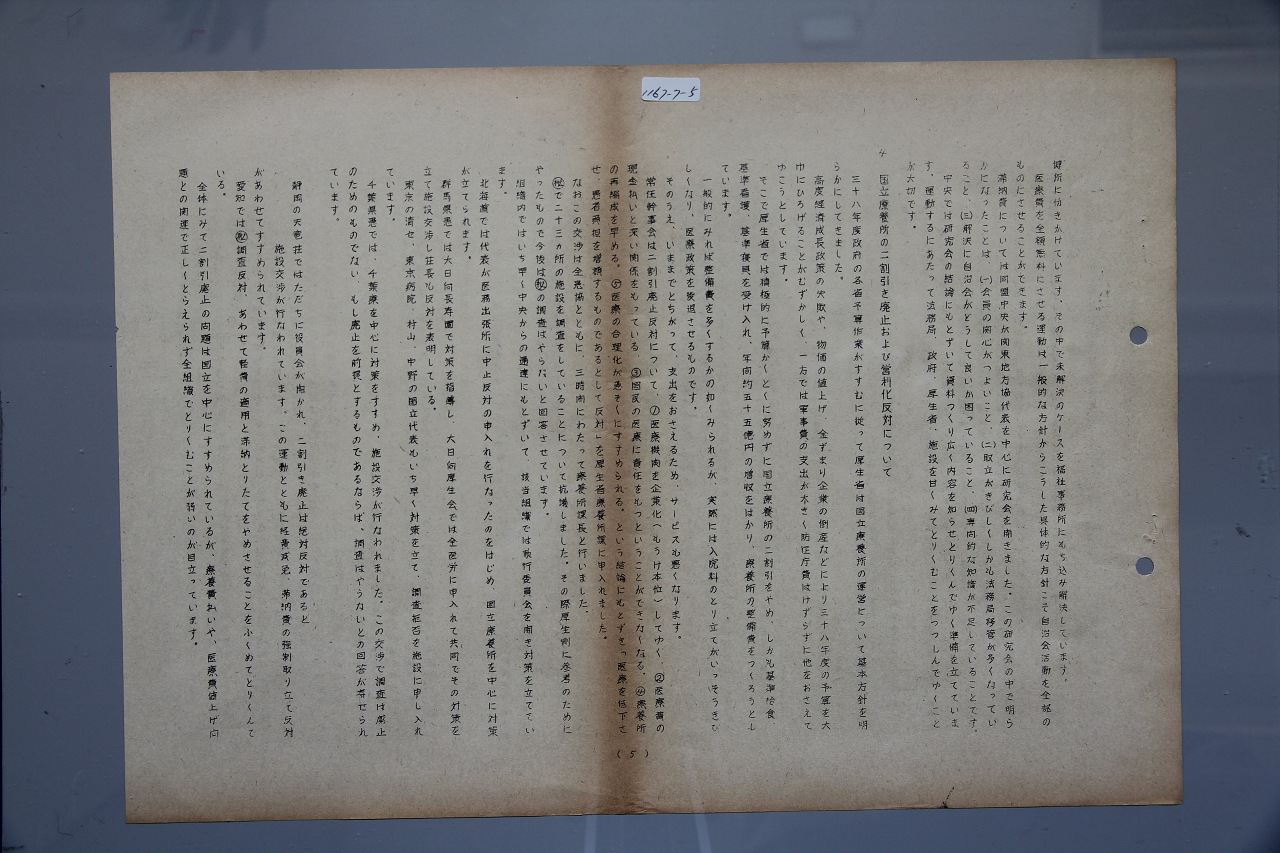 1167-7-5
健所に付きかけています。その中で未解決のケースを福祉事務所にもち込み解決しています。
医療費を全額無料にさせる運動は一般的な方針からこうした具体的な方針こそ自治会活動を全部の
ものにさせることができます。
滞納費については同盟中央が関東地方協代表を中心に研究会を開きました。この研究会の中で明ら
かになったことは、(一)会員の関心がつよいこと、(二)取立がきびしくしかも法務局移管が多くなってい
ること、(三)解決に自治会がどうして良いか困っていること、(四)専門的な知識が不足していることです。
中央では研究会の結論にもとずいて資料つくり広く内容を知らせとりくんでゆく準備を立てていま
す。運動するにあたって法務局、政府、厚生省、施設を甘くみてとりくむことをつつしんでゆくこと
が大切です。
4 国立療養所の二割引き廃止および営利化反対について
三十八年度政府の各省予算作業がすすむに従って厚生省は国立療養所の運営について基本方針を明
らかにしてきました。
高度経済成長政策の失敗や、物価の値上げ、金ずまり企業の倒産などにより三十八年度の予算を大
巾にひろげることがむずかしく、一方では軍事費の支出が大きく防衛庁費はけずらずに他をおさえて
ゆこうとしています。
そこで厚生省では積極的に予算かくとくに努めずに国立療養所の二割引をやめ、しかも基準給食
基準看護、基準寝具を受け入れ、年間約五十五億円の増収をはかり、療養所の整備費をつくろうとし
ています。
一般的にみれば整備費を多くするかの如くみられるが、実際には入院料のとり立てがいっそうきび
しくなり、医療政策を後退させるものです。
そのうえ、いままでとちがって、支出をおさえるため、サービスも悪くなります。
常任幹事会は二割引廃止反対について、①医療機関を企業化(もうけ本位)してゆく、②医療費の
現金払いと深い関係をもっている、③国民の医療に責任をもつということができなくなる、④療養所
の再編成を早める。⑤医療の合理化が急そくにすすめられる。という結論にもとずき「医療を低下さ
せ、患者負担を増額するものであるとして反対」を厚生省療養所課に申入れました。
なおこの交渉は全患協とともに、三時間にわたって療養所課長と行いました。
㊙で二十三カ所の施設を調査をしていることについて抗議しました。その際厚生側に参考のために
やったもので今後は㊙の調査はやらないと回答させています。
組織内ではいち早く中央からの通達にもとずいて、該当組織では執行委員会を開き対策を立ててい
ます。
北海道では代表が医務出張所に中止反対の申入れを行なったのをはじめ、国立療養所を中心に対策
が立てられます。
群馬県患では大日向長寿園で対策を指導し、大日向厚生会では全医労に申入れて共同でその対策を
立て施設交渉し荘長も反対を表明している。
東京の清セ、東京病院、村山、中野の国立代表もいち早く対策を立て、調査拒否を施設に申し入れ
ています。
千葉県患では、千葉療を中心に対策をすすめ、施設交渉が行なわれました。この交渉で調査は廃止
のためのものでない、もし廃止を前提とするものであるならば、調査はやらないとの回答が寄せられ
ています。
静岡の天竜荘ではただちに役員会が開かれ、二割引き廃止は絶対反対であると
施設交渉が行なわれています。この運動とともに軽費減免、滞納費の強制取り立て反対
があわせてすすめられています。
愛知では㊙調査反対、あわせて軽費の適用と滞納とりたてをやめさせることをふくめてとりくんで
いる。
全体にみて二割引廃止の問題は国立を中心にすすめられているが、療養費払いや、医療費値上げ問
題との関連で正しくとらえられず全組織でとりくむことが弱いのが目立っています。
(5)